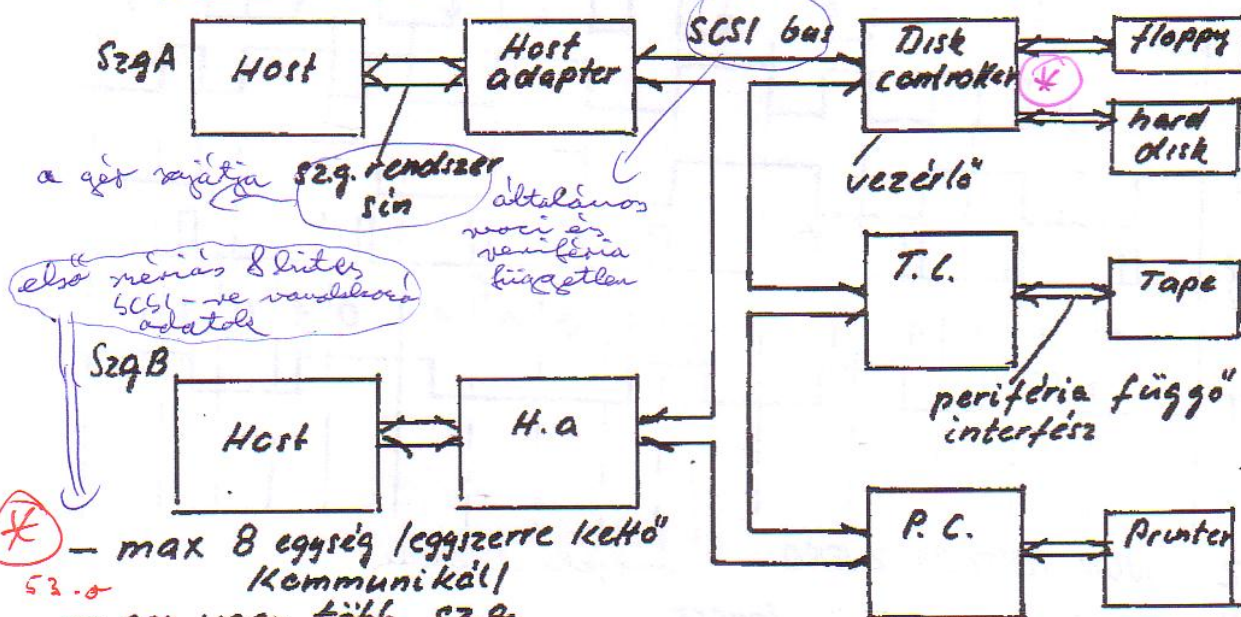 SzgA
Host
Host
adapter
SCSI bus
Disk
controller
*
floppy
hard
disk
vezérlő
a gép sajátja
szg. rendszer
sín
általános
proci és
periféria
független
első szériás 8 bites
SCSI-re vonatkozó
adatok
T.C.
Tape
periféria függő
interfész
SzgB
Host
H.a
P.C.
Printer
*
53.o
- max 8 egység /egyszerre kettő
kommunikál/
több szg